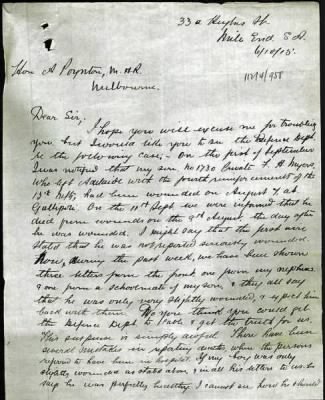 33a Hughes St.
Mile End S.A.
6/10/15.
Hon A Poynton, M.H.R.
Melbourne.
Dear Sir,
I hope you will excuse me for troubling
you, but I would like you to see the Defence Dept
re the following case; - On the first of September
I was notified that my son No 1730 Private F. H. Myers,
who left Adelaide with the fourth reinforcements of the
13th, had been wounded on August 7, at
Gallipoli. On the 11th Sept we were informed that he
died from wounds on the 8th August, the day after
he was wounded. I might say that the first wire
stated that he was not reported seriously wounded
Now, during the past week, we have been shown
three letters from the front, one from my nephew
& one from a schoolmate of my son, & they all say
that he was only very slightly wounded, & expect him
back with them. Do you think you could get
the Defence Dept to & get the truth for us.
This suspense is simply awful. There have been
several mistakes in reporting deaths, when the persons
referred to have been in hospital. If my boy was only
slightly wounded as stated above, & in all his letters to us he
say he was perfectly healthy, I cannot see how he should